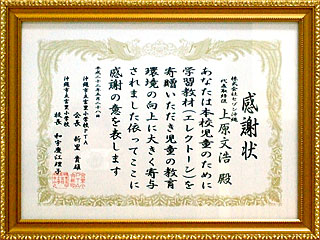 感謝状
株式会社セゾン沖縄
代表取締役 上原文浩 殿
あなたは本校児童のために
学習教材(エレクトーン)を
寄贈いただき児童の教育
環境の向上に大きく寄与
されました依ってここに
感謝の意を表します
沖縄市立宮里小学校PTA
会長 新里貴雄
沖縄市立宮里小学校
校長